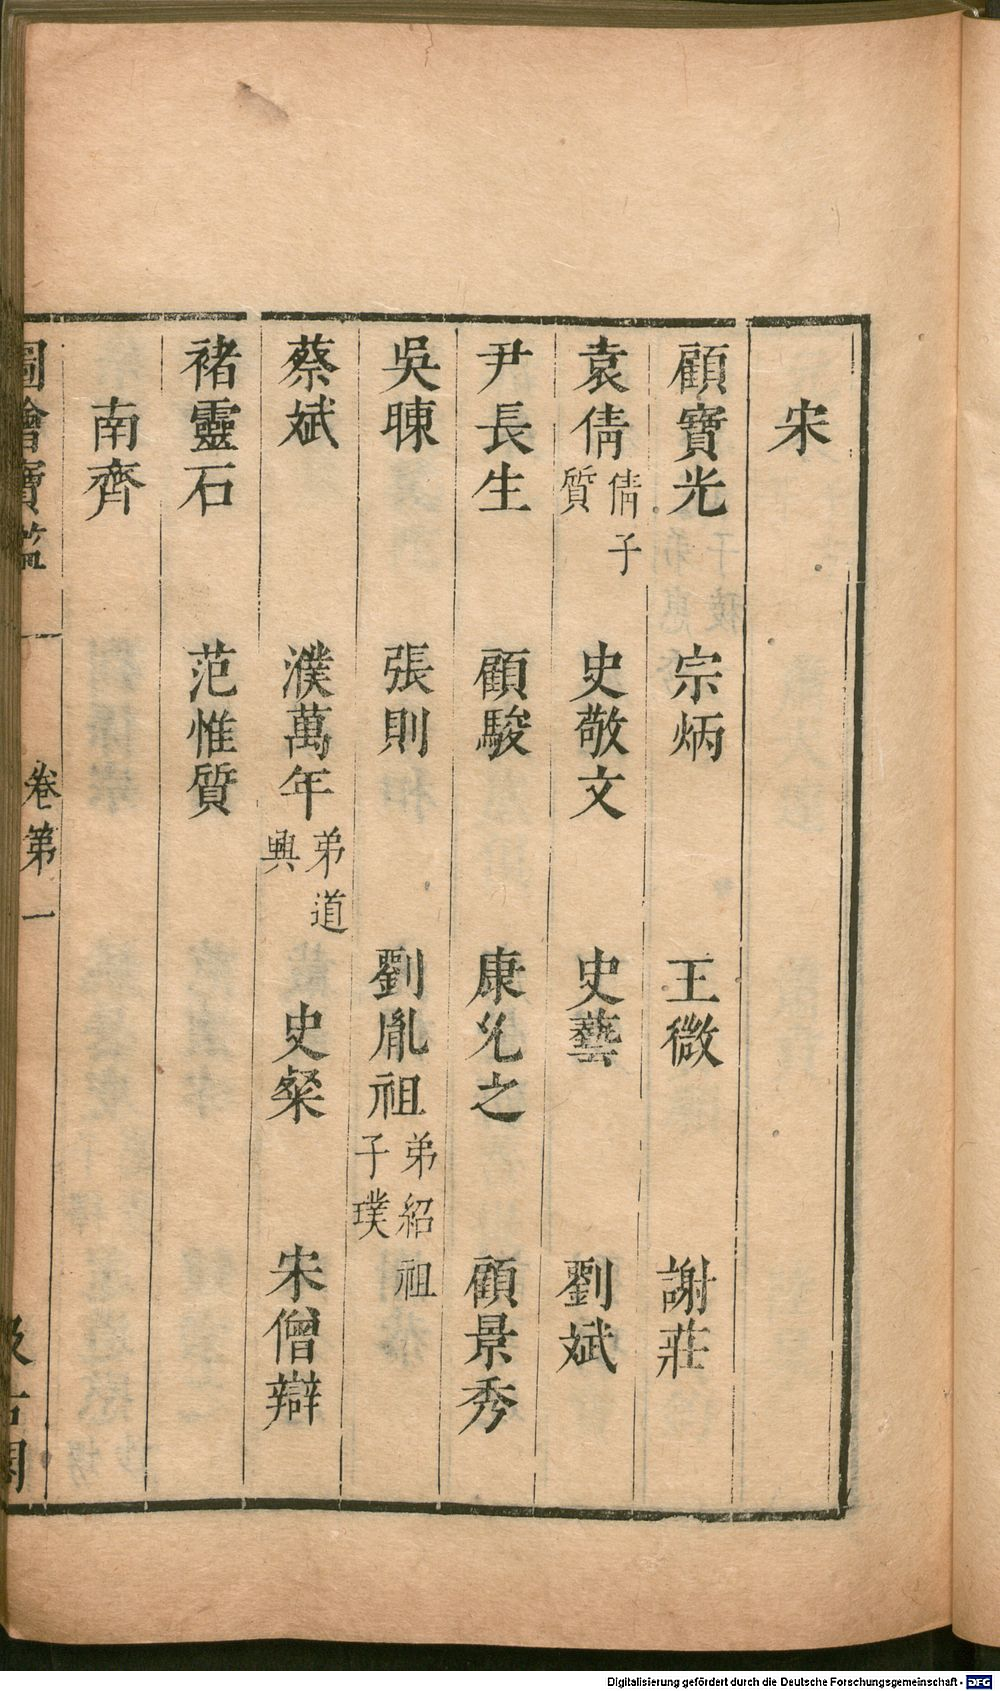 宋
顧寶光 宗炳 王微 謝莊
袁倩 倩子質 史敬文 史藝 劉斌
尹長生 顧駿 康允之 顧景秀
吳暕 張則 劉胤祖 弟紹祖子璞
蔡斌 濮萬年 弟道興 史粲 宋僧辯
褚靈石 范惟質
南齊
圖繪寶鑑 卷第一 汲古閣
Digitalisierung gefördert durch die Deutsche Forschungsgemeinschaft - DFG